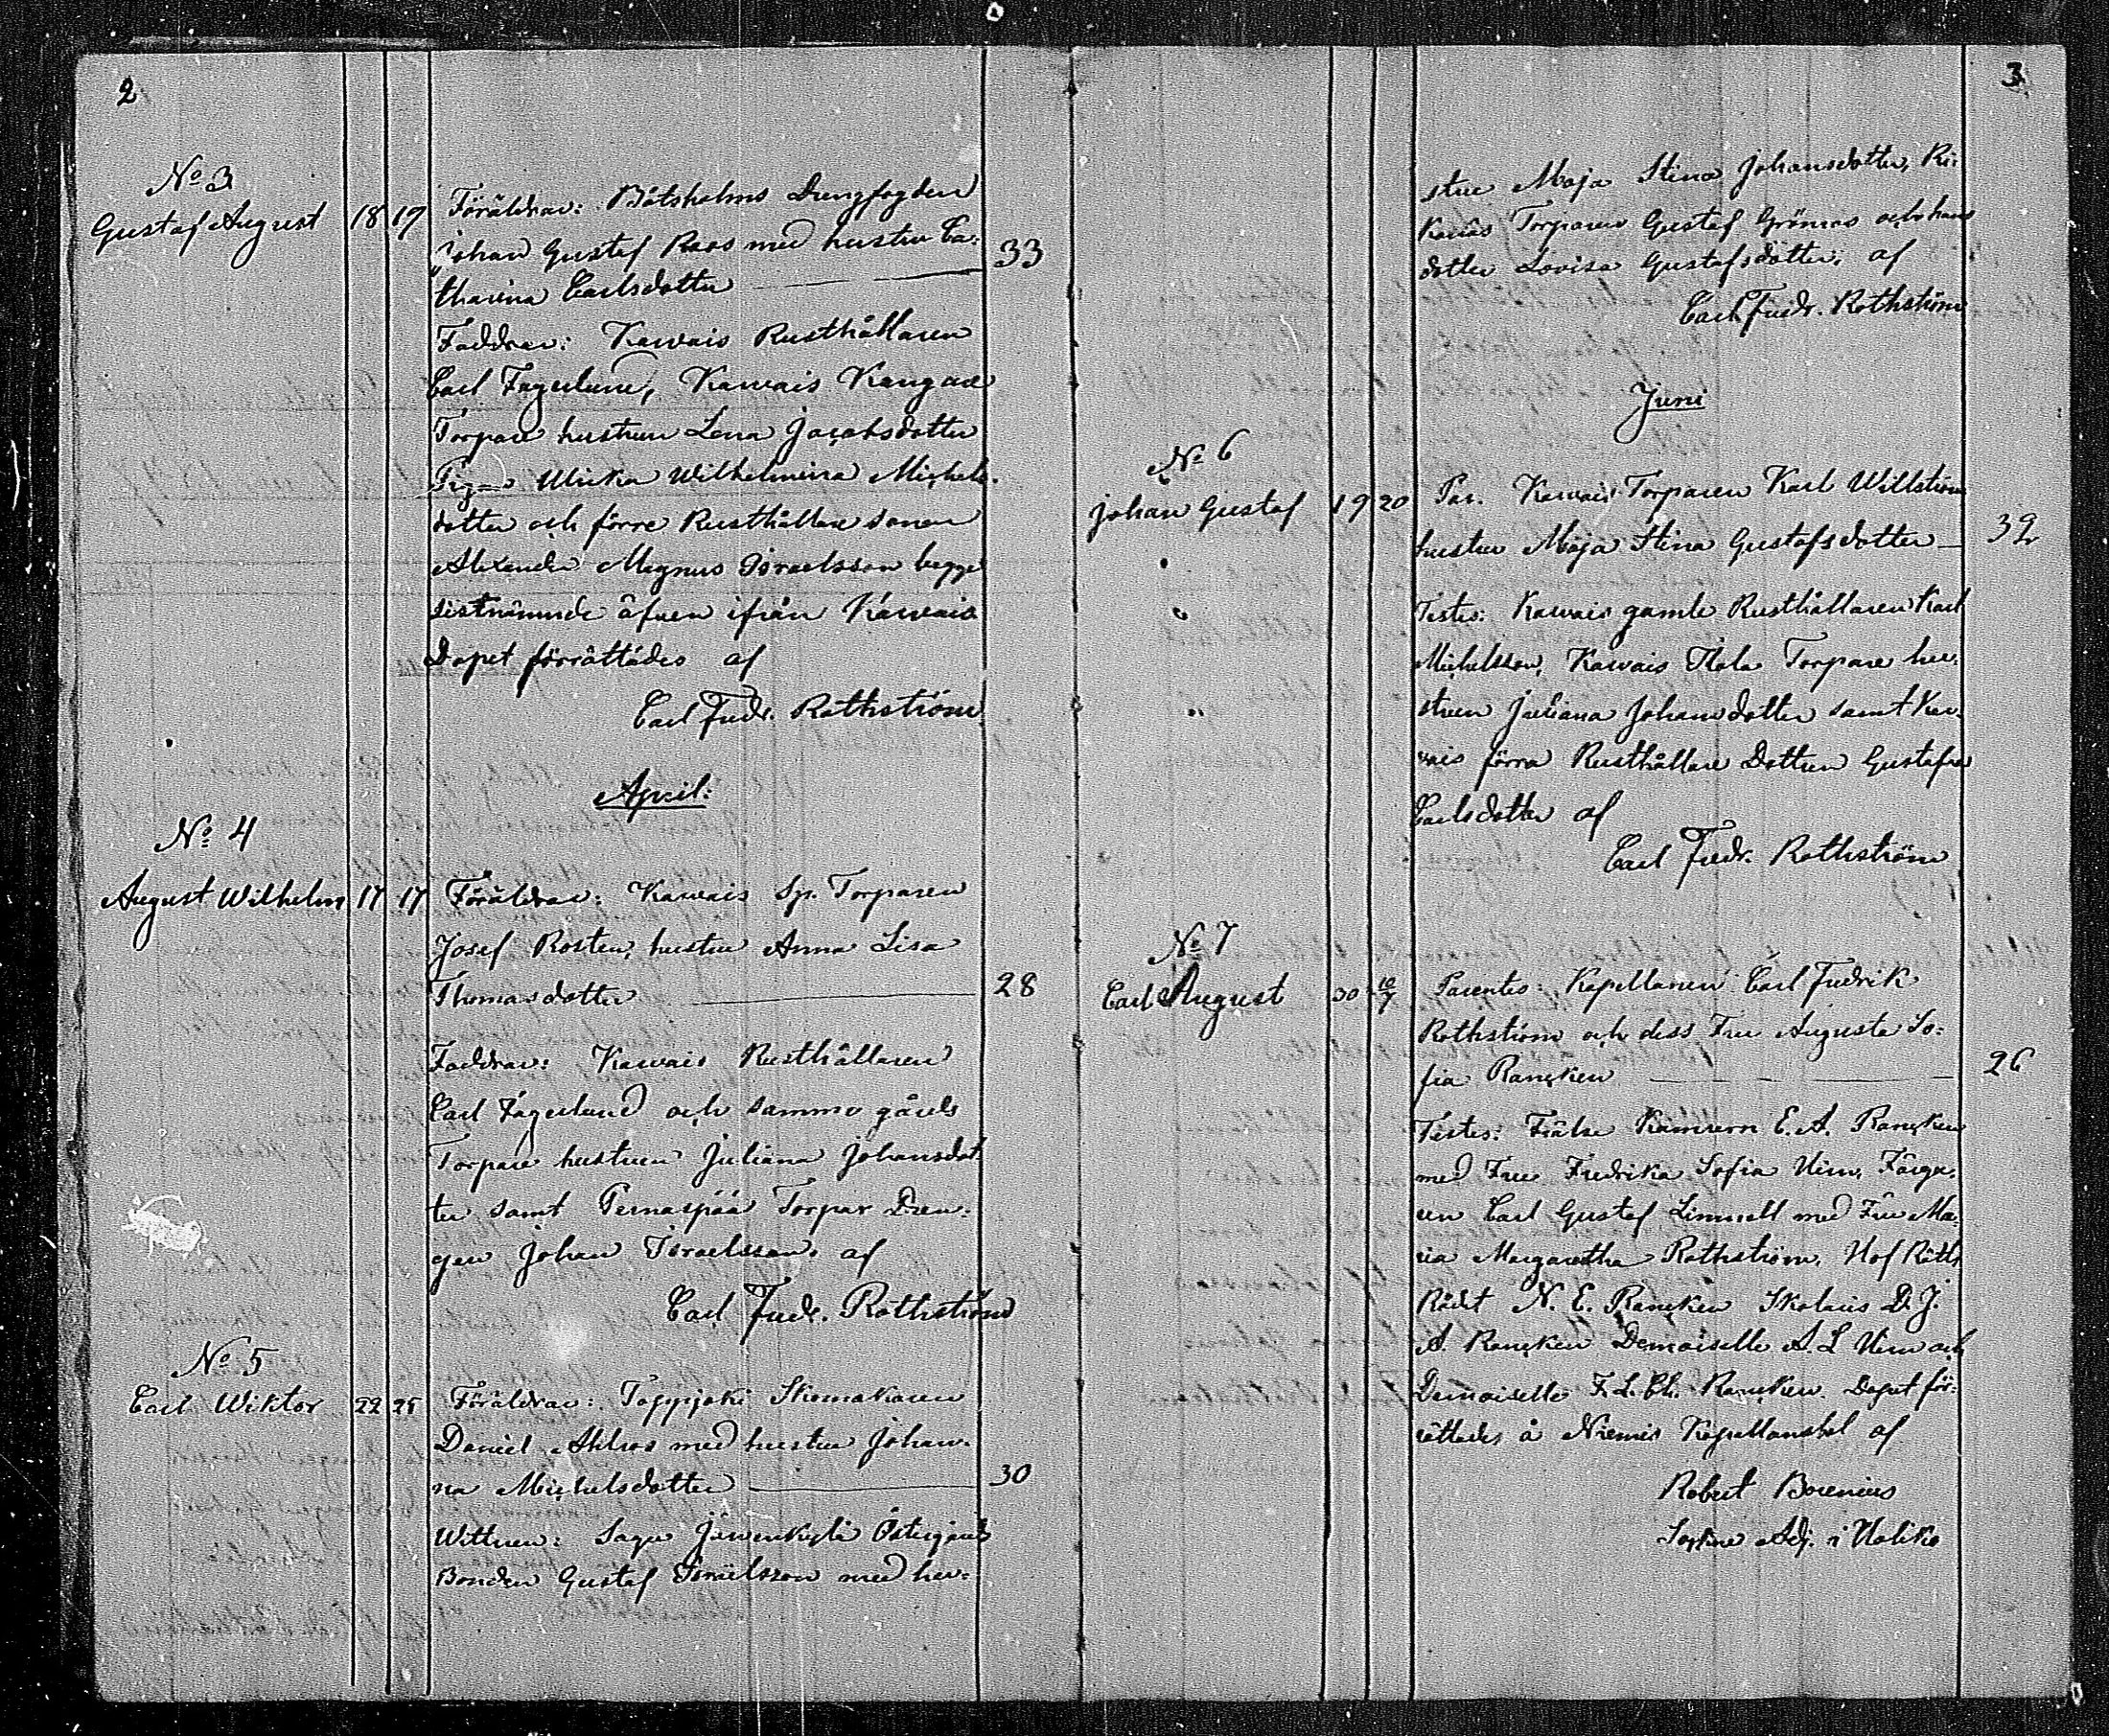 2
No 3
Gustaf August 18 19 Föräldrar: Båtsholms Dingfogden
Johan Gustaf Roos med hustru Ca=
tharina Carlsdotter 33
Faddrar: Karvais Rusthållaren
Carl Fagerlund, Karvais Kangas
Torpare hustrun Lena Jacobsdotter
Pigan Ulrika Wilhelmina Michels=
dotter och förre Rusthållare sonen
Alexander Magnus Israelsson begge
sistnämnde äfven ifrån Karvais
Dopet förrättades af
Carl Fredr. Rothström
April:
No 4
August Wilhelm 17 17 Föräldrar: Karvais Sp. Torparen
Josef Rosten, hustru Anna Lisa
Thomasdotter 28
Faddrar: Karvais Rusthållaren
Carl Fagerlund och samma gårds
Torpare hustrun Juliana Johansdot
ter samt Pernaspää Torpar Dren=
gen Johan Israelsson. af
Carl Fredr. Rothström
No 5
Carl Wiktor 22 25 Föräldrar: Toppjoki Skomakaren
Daniel Ahlros med hustru Johan=
na Michelsdotter 30
Wittnen: Sagu Järvenkylä Östergårds
Bonden Gustaf Israelsson med hu=
3
stru Maja Stina Johansdotter,
Torparen Gustaf Grönroos och hans
dotter Lovisa Gustafsdotter. af
Carl Fredr. Rothström
Juni
No 6
Johan Gustaf 19 20 Par. Karvais Torparen Karl Willström
hustru Maja Stina Gustafsdotter 32
Testes: Karvais gamle Rusthållaren Karl
Michelsson, Karvais Torpare hu=
strun Juliana Johansdotter samt Kar=
vais förra Rusthållare Dottren Gustafva
Carlsdotter af
Carl Fredr. Rothström
No 7
Carl August 30 10/7 Parentes: Kapellanen Carl Fredrik
Rothström och dess Fru Augusta So=
fia Rancken 26
Testes: Kamrern E. A. Rancken
med Fru Fredrika Sofia Färga=
ren Carl Gustaf Limnell med Fru Ma=
ria Margaretha Rothström, Hof Rätts
Rådet N. E. Rancken Skolaris D. J.
A. Rancken Demoiselle A. L. och
Demoiselle F. L. Ch. Rancken. Dopet för=
rättades å Niemis Kapellansbol af
Robert Borenius
Adj. i Haliko